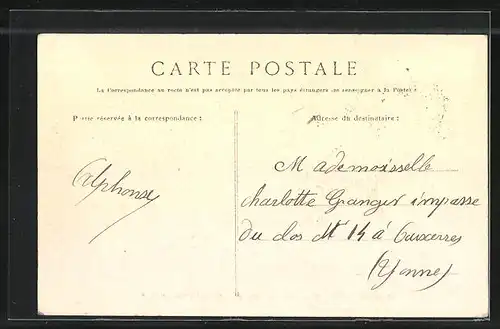 CARTE POSTALE
La Correspondance au recto n'est pas acceptée par tous les pays étrangers (se renseigner à la Poste)
Partie réservée à la correspondance :
Adresse du destinataire :
Alphonse
Mademoisselle
charlotte Granger impasse
du clos N 14 à Auxerres
(Yonne)